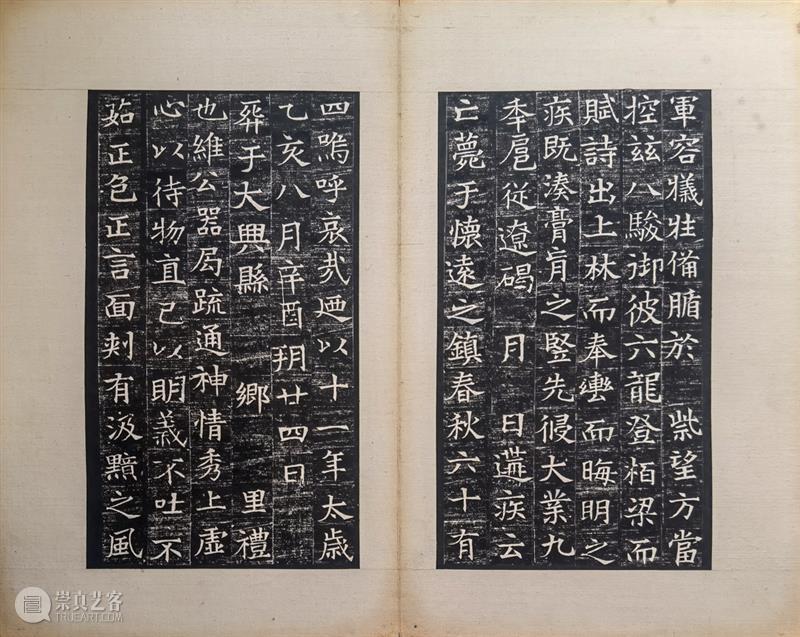 軍容犧牲備腯於 祡望方當
控茲八駿御彼六龍登栢梁而
賦詩出上林而奉轡而晦明之
疾既湊膏肓之豎先侵大業九
秊扈從遼碣 月 日遘疾云
亡薨于懷遠之鎮春秋六十有
四嗚呼哀哉廼以十一年太歲
乙亥八月辛酉朔廿四日
葬于大興縣 鄉 里禮
也維公器局疏通神情秀上虛
心以待物直己以明義不吐不
茹正色正言面刾有汲黯之風
崇真艺客
TRUEART.COM